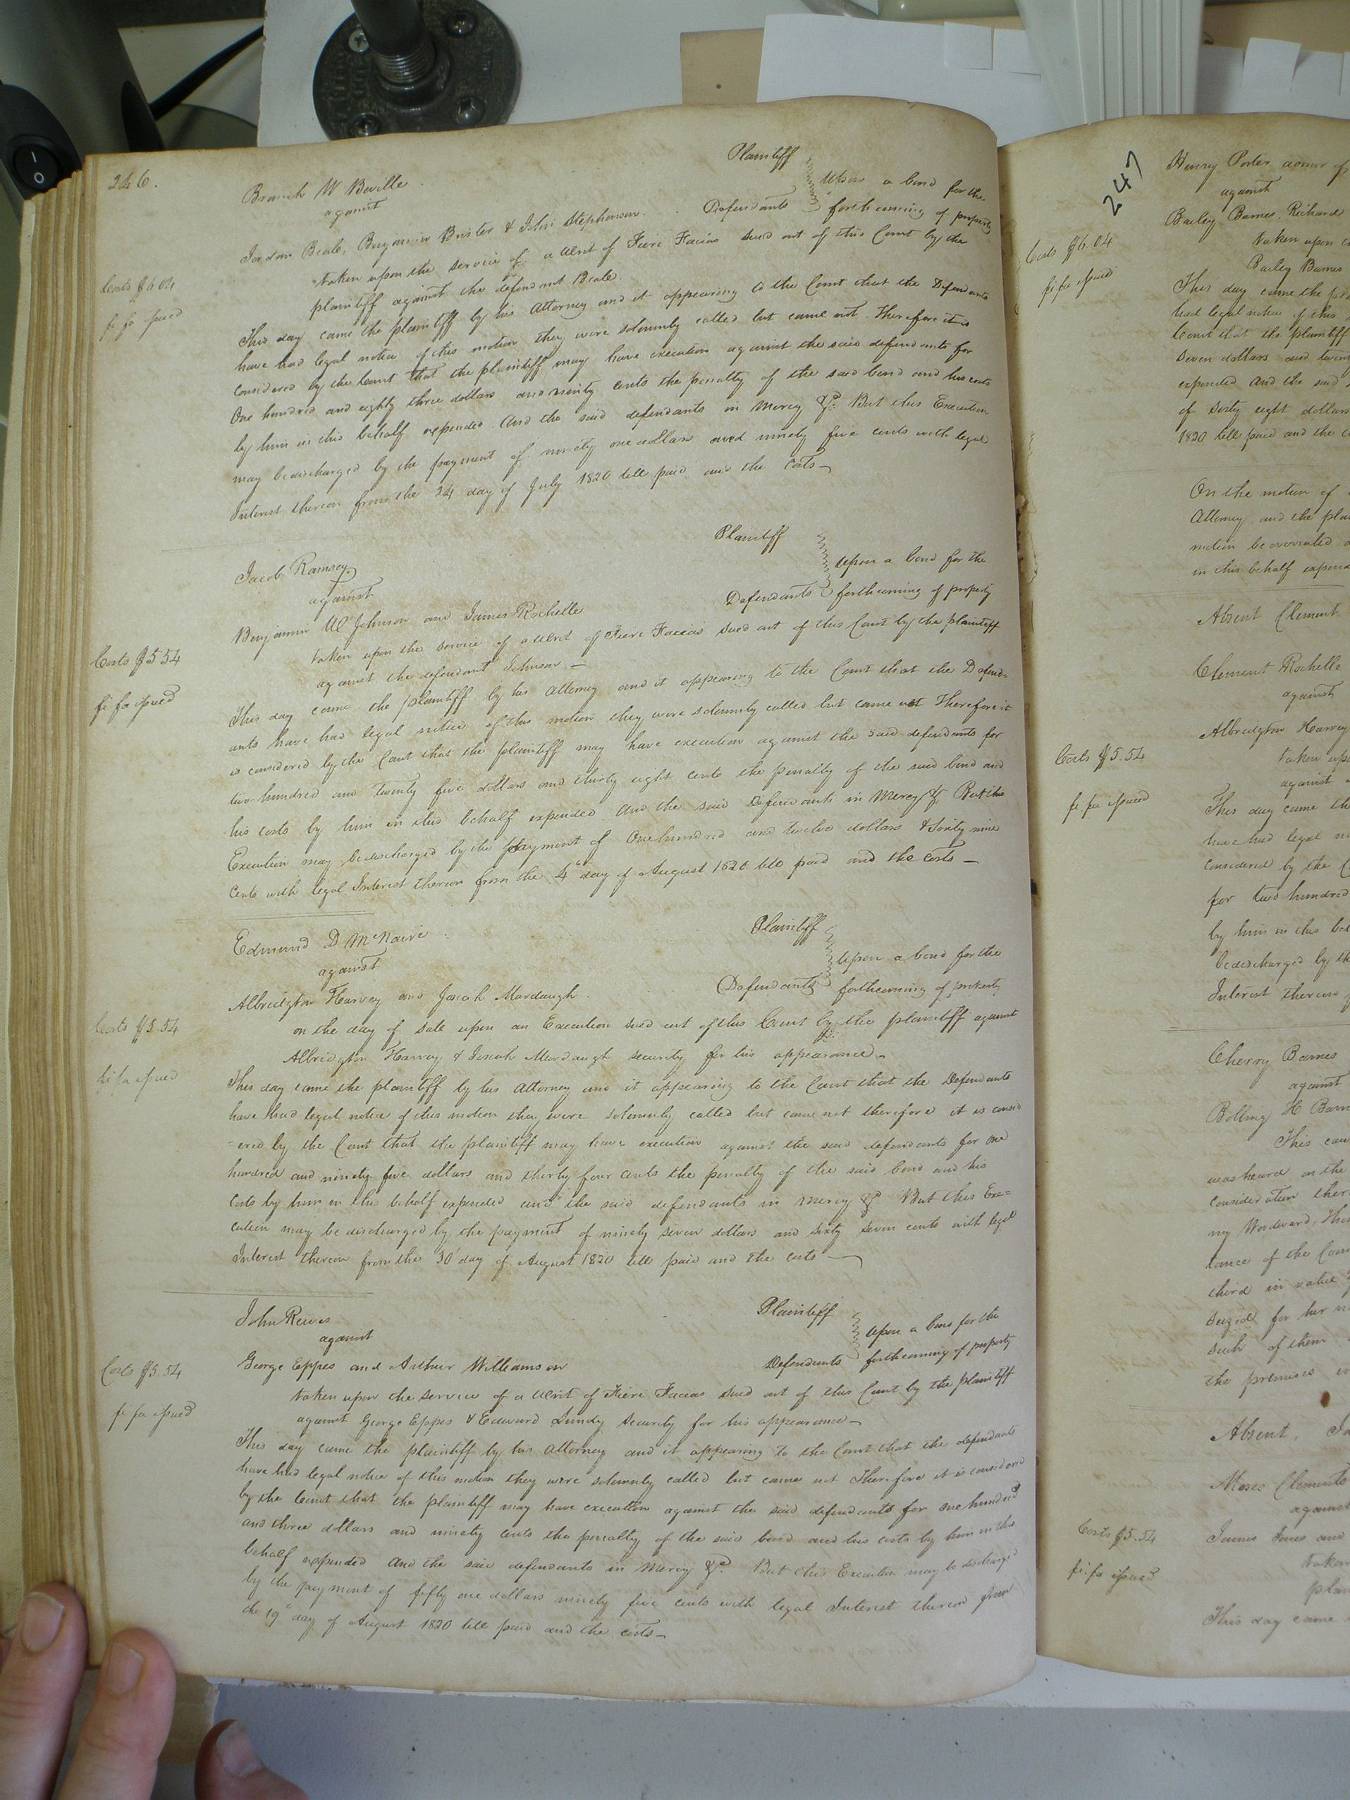 246.
Branch W Beville Plaintiff
against
Upon a bond for the
Jordan Beale, Benjamin Bister & John Stephenson. Defendants forthcoming of property
taken upon the service of a Writ of Fiere Facias sued out of this Court by the
plaintiff against the defendant Beale.
Costs $6.04
fi fa issued
This day came the plaintiff by his Attorney and it appearing to the Court that the Defendants
have had legal notice of this motion they were solemnly called but came not. Therefore it is
considered by the Court that the plaintiff may have execution against the said defendants for
One hundred and eighty three dollars and ninety cents the penalty of the said bond and his costs
by him in this behalf expended And the said defendants in Mercy &c. But this Execution
may be discharged by the payment of ninety one dollars and ninety five cents with legal
Interest thereon from the 24 day of July 1820 till paid and the Costs
Jacob Ramsey Plaintiff
against
Upon a bond for the
Benjamin W Johnson and James Rochelle Defendants forthcoming of property
taken upon the service of a Writ of Fiere Facias sued out of this Court by the plaintiff
against the defendant Johnson.
Costs $5.54
fi fa issued
This day came the plaintiff by his Attorney and it appearing to the Court that the Defend-
ants have had legal notice of this motion they were solemnly called but came not Therefore it
is considered by the Court that the plaintiff may have execution against the said defendants for
two hundred and twenty five dollars and thirty eight cents the penalty of the said bond and
his costs by him in this behalf expended And the said Defendants in Mercy &c. But this
Execution may be discharged by the payment of One hundred and twelve dollars & Sixty nine
Cents with legal Interest thereon from the 4th day of August 1820 till paid and the Costs
Edmund D McNaire Plaintiff
against
Upon a bond for the
Albridgton Harvey and Josiah Mordaugh Defendants forthcoming of property
on the day of sale upon an Execution sued out of this Court by the plaintiff against
Albridgton Harvey & Josiah Mordaugh security for his appearance.
Costs $5.54
fi fa issued
This day came the plaintiff by his Attorney and it appearing to the Court that the Defendants
have had legal notice of this motion they were solemnly called but came not therefore it is consid
-ered by the Court that the plaintiff may have execution against the said defendants for one
hundred and ninety five dollars and thirty four cents the penalty of the said bond and his
Costs by him in this behalf expended and the said defendants in Mercy &c. But this Exe-
cution may be discharged by the payment of ninety seven dollars and sixty seven cents with legal
Interest thereon from the 30 day of August 1820 till paid and the costs
John Reives Plaintiff
against
Upon a bond for the
George Eppes and Arthur Williamson Defendants forthcoming of property
taken upon the service of a Writ of Fiere Facias sued out of this Court by the plaintiff
against George Eppes & Edward Lundy Security for his appearance
Costs $5.54
fi fa issued
This day came the plaintiff by his attorney and it appearing to the Court that the defendants
have had legal notice of this motion they were solemnly called but came not Therefore it is considered
by the Court that the plaintiff may have execution against the said defendants for one hundred
and three dollars and ninety cents the penalty of the said bond and his costs by him in this
behalf expended and the said defendants in Mercy &c. But this Execution may be discharged
by the payment of fifty one dollars ninety five cents with legal Interest thereon from
the 19th day of August 1820 till paid and the costs
247
Henry Porter
against
Bailey Barnes, Richard
taken upon
Bailey Barnes
Costs $6.04
fi fa issued
This day came the
had legal notice of this
Court that the plaintiff
seven dollars and
expended and the said
of Sixty eight dollars
1820 till paid and the
On the motion of
Attorney and the
motion be overruled
in this behalf
Absent Clement
Clement Rochelle
against
Albridgton Harvey
taken
against
Costs $5.54
fi fa issued
This day came
have had legal
considered by the
for two hundred
by him in this
be discharged by
Interest thereon
Cherry Barnes
against
Bolling H
This
was heard on the
consideration
my Woodward
tance of the
third in value
seized for her
such of them
the premises
Absent,
Moses Clements
against
Costs $5.54
James Jones and
fi fa issued
taken
This day came